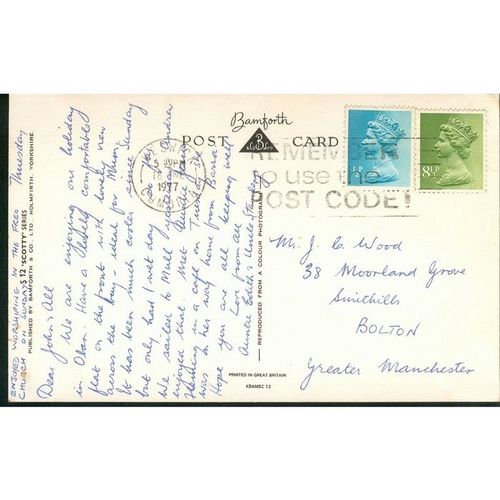 Bamforth
POST CARD
B
& Co Ltd
8½P
5 30PM
1977
REMEMBER
to use the
POST CODE!
Thursday
Dear John & All
We are enjoying our holiday
in Oban. Have a comfortable
flat on the front with lovely view
across the bay - ideal for Mum
It has been much cooler since Sunday
but only had 1 wet day so far.
We sailed to Mull by and
enjoyed that. Met
in a cafe on Tuesday. She
was on her way home from Barra
Hope you are all keeping well
Love from all
Auntie Edith & Uncle Stanley
ENJOYED WORSHIPING IN THE FREE
CHURCH ON SUNDAY
S 12 'SCOTTY' SERIES
PUBLISHED BY BAMFORTH & CO. LTD. HOLMFIRTH YORKSHIRE.
REPRODUCED FROM A COLOUR PHOTOGRAPH
Mr J. C. Wood
38 Moorland Grove
Smithills
BOLTON
Greater Manchester
PRINTED IN GREAT BRITAIN
KBAMSC 12